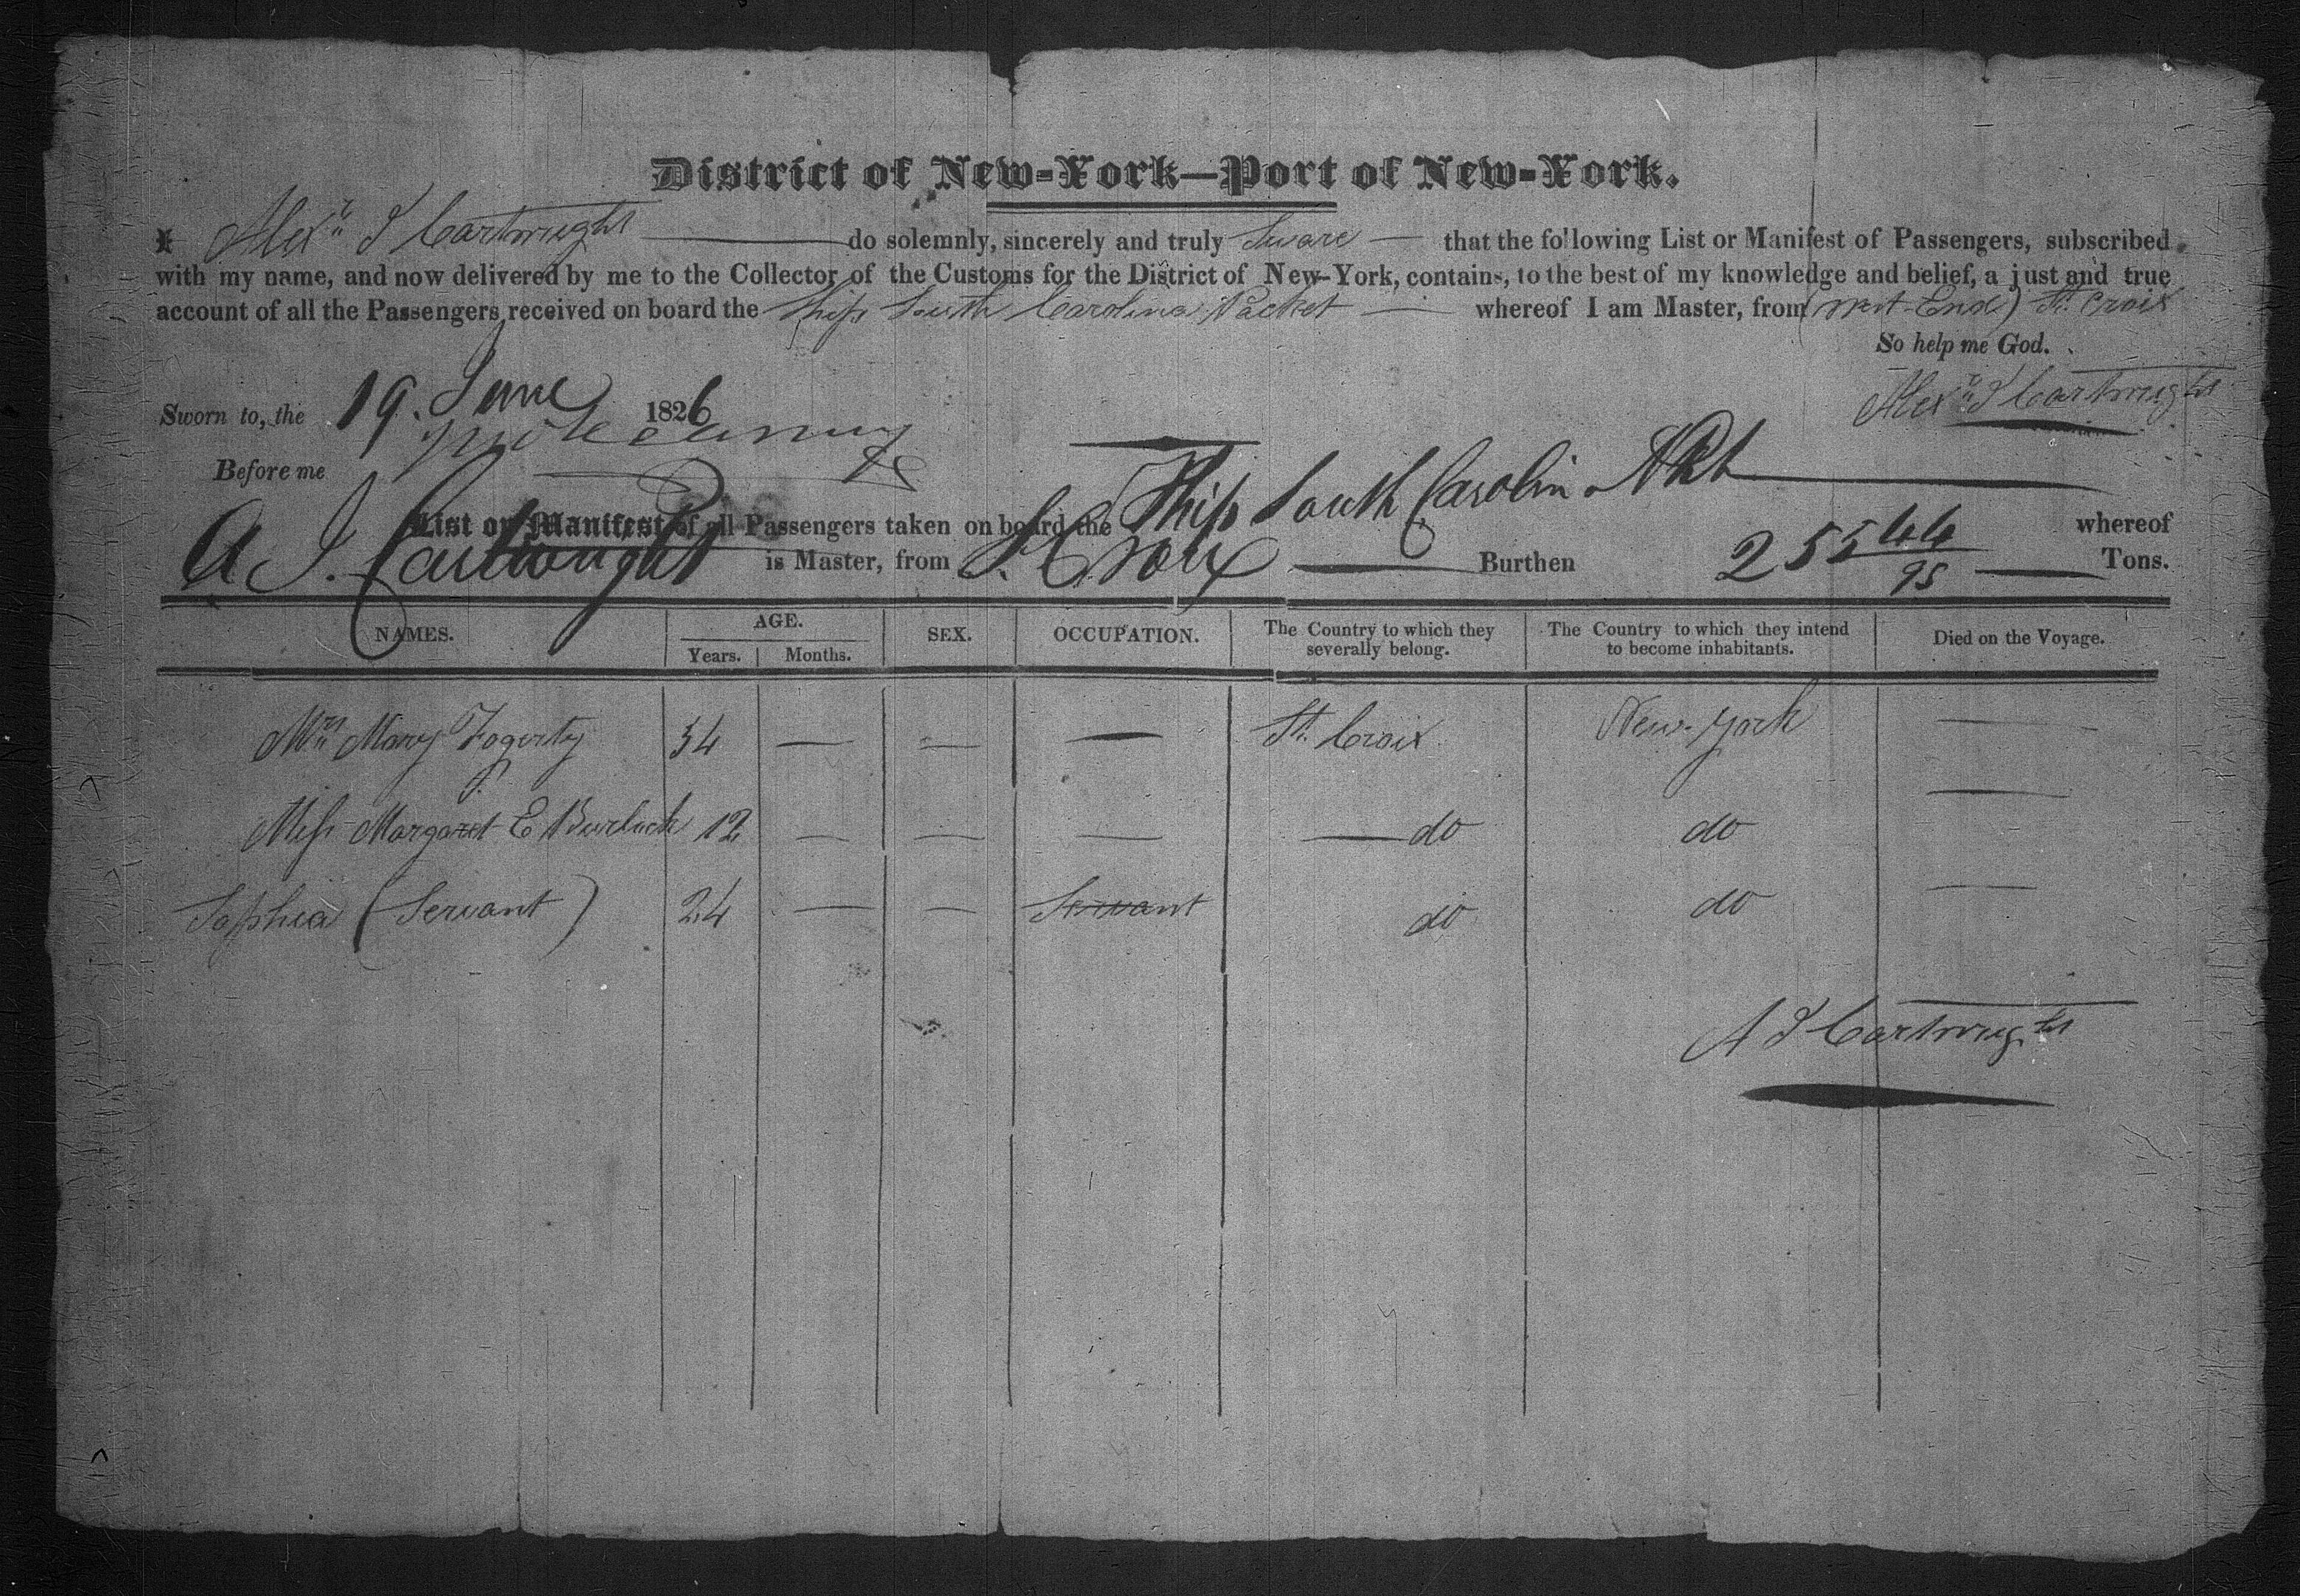 District of New-York—Port of New-York.
I Alexr J Cartwright do solemnly, sincerely and truly Sware that the following List or Manifest of Passengers, subscribed
with my name, and now delivered by me to the Collector of the Customs for the District of New-York, contains, to the best of my knowledge and belief, a just and true
account of all the Passengers received on board the Ship South Carolina Packet whereof I am Master, from (West-End) St. Croix
So help me God.
Sworn to, the 19. June 1826
Alexr J Cartwright
Before me
List or Manifest of all Passengers taken on board the Ship South Carolina Pkt whereof
A J. Cartwright is Master, from St Croix Burthen 255 44/95 Tons.
NAMES. AGE. SEX. OCCUPATION. The Country to which they severally belong. The Country to which they intend to become inhabitants. Died on the Voyage.
Years. Months.
Mrs Mary Fogerty 54 — — — St. Croix New-York —
Miss Margaret E Burlock 12 — — — do do —
Sophia (Servant) 24 — — Servant do do —
A J Cartwright